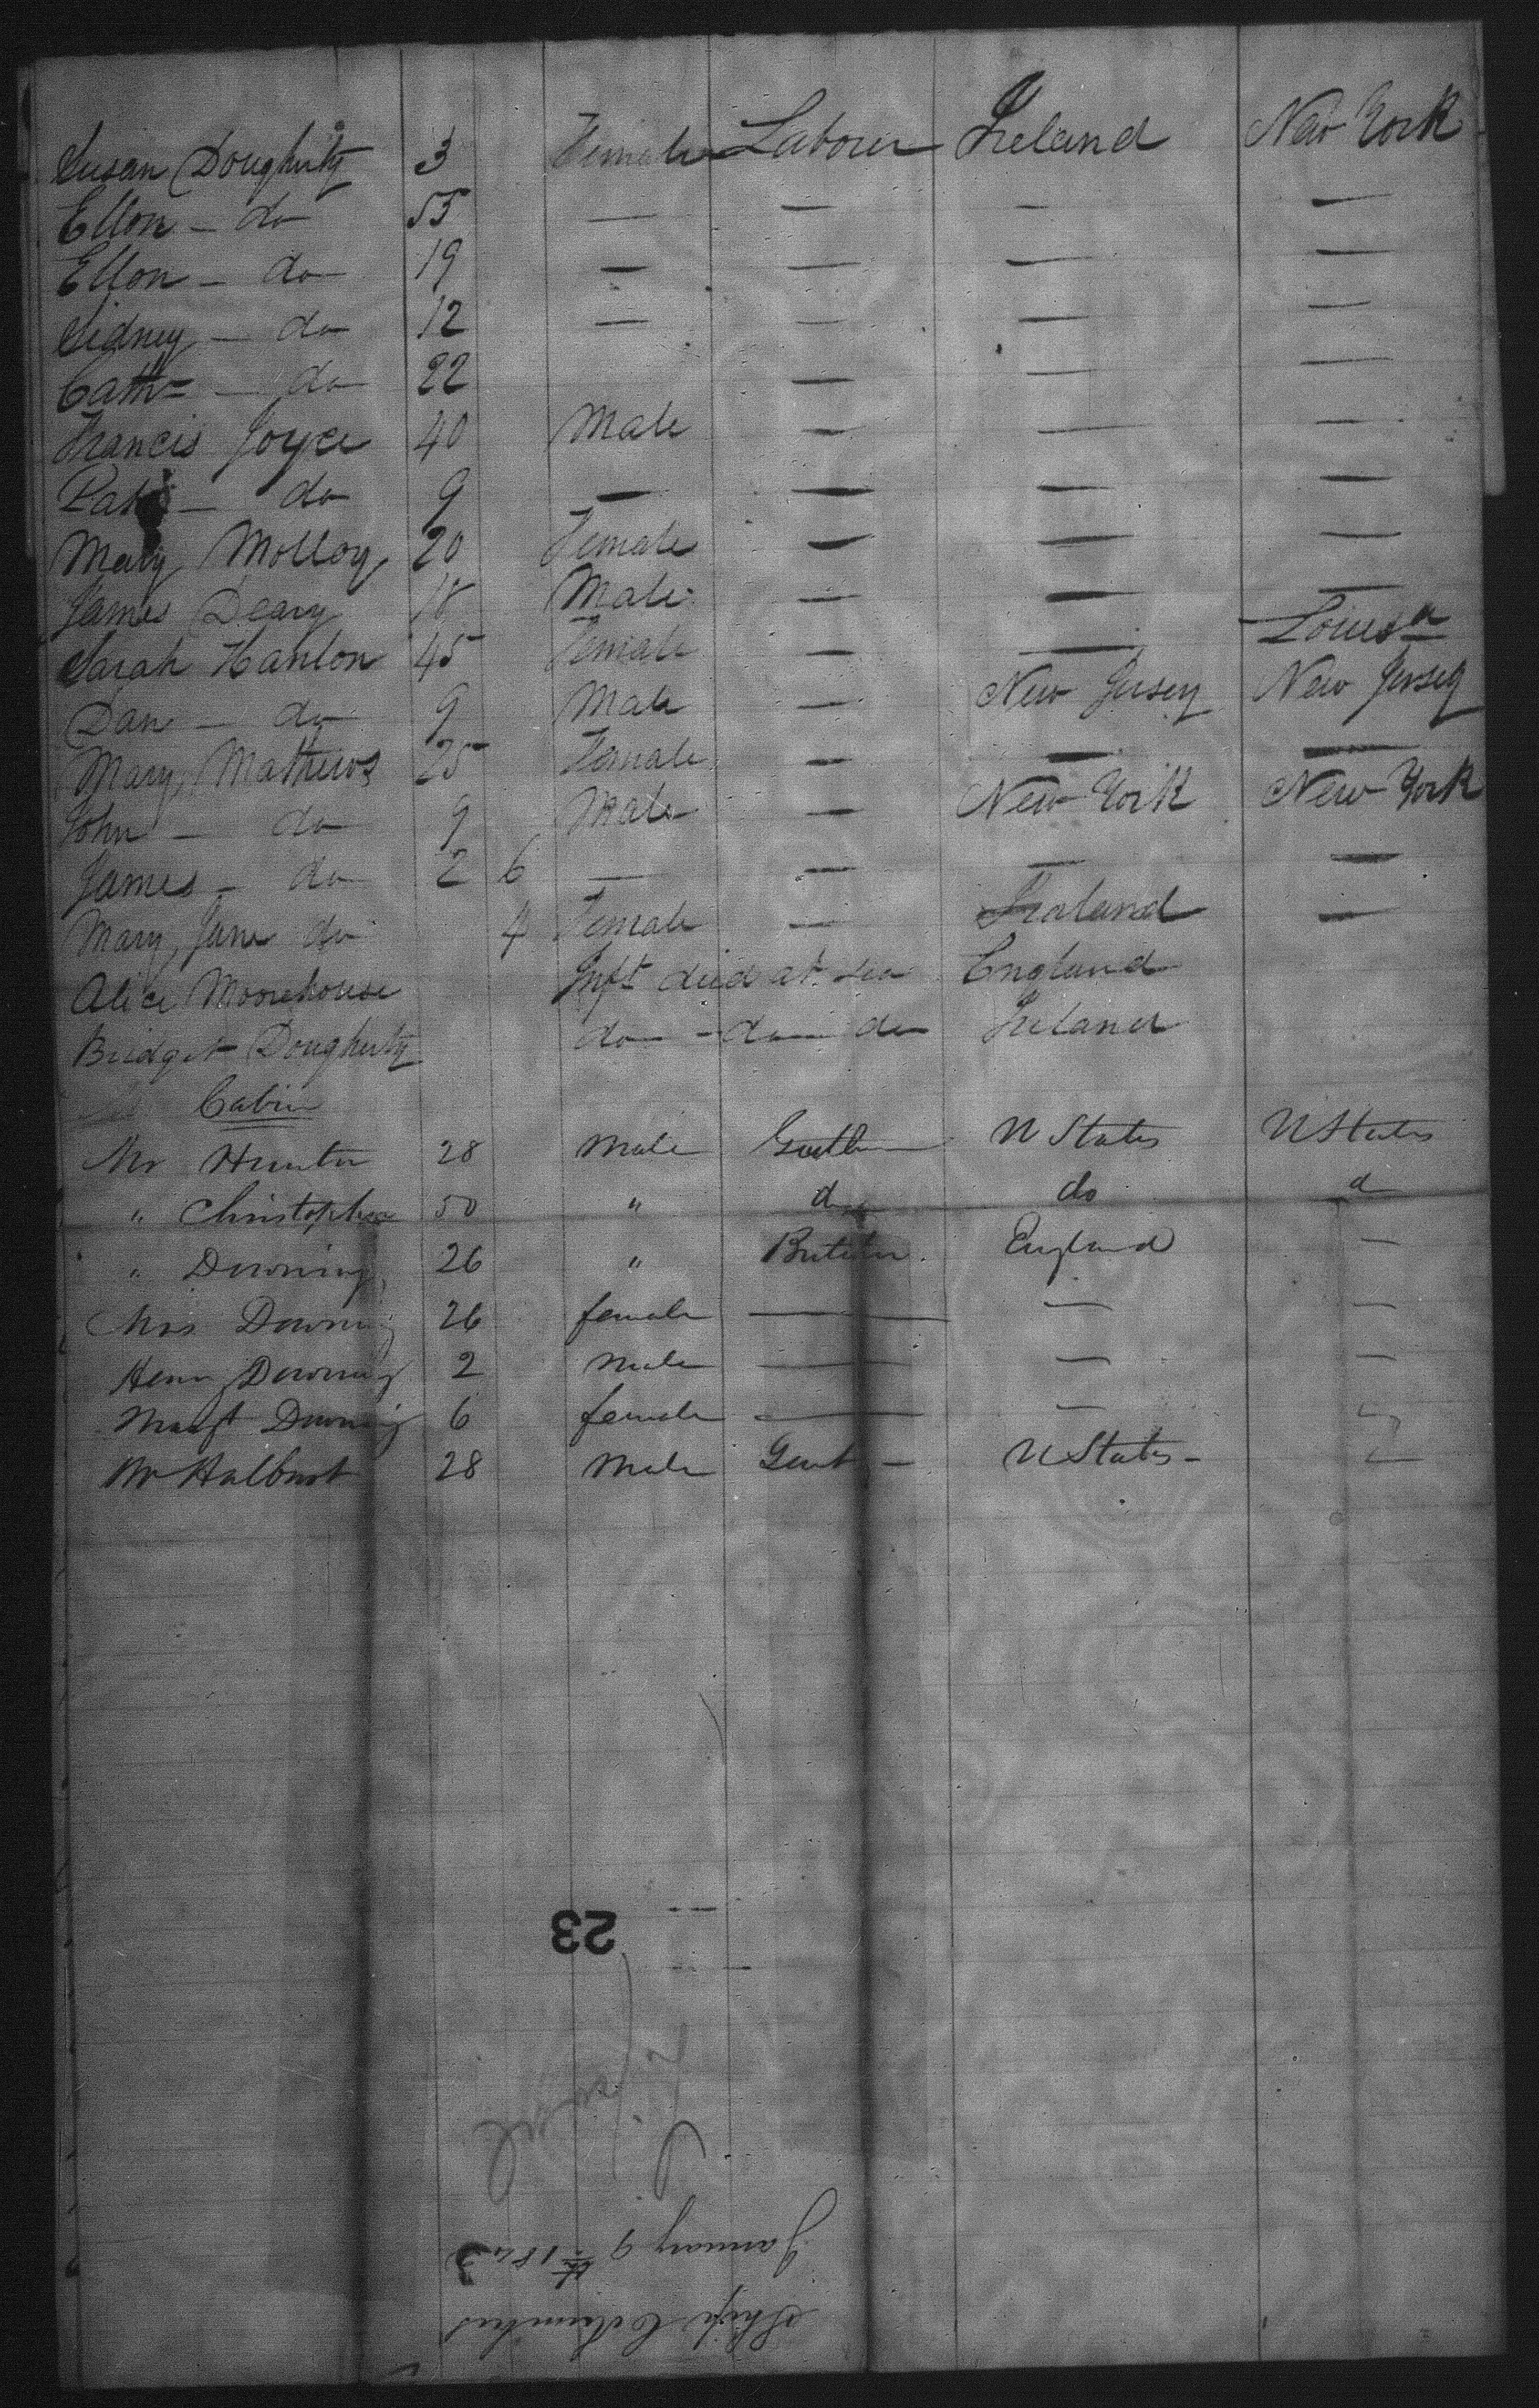 Susan Dougherty 3 Female Labourer Ireland New York
Ellen - do 55 — — — —
Ellen - do 19 — — — —
Sidney - do 12 — — — —
Cath - do 22 — — —
Francis Joyce 40 Male — — —
Pat - do 9 — — — —
Mary Molloy 20 Female — — —
James Deary 18 Male — — —
Sarah Hanlon 45 Female — — Louisa
Dan - do 9 Male — New Jersey New Jersey
Mary Mathews 25 Female — — —
John - do 9 Male — New York New York
James - do 2 6 — — — —
Mary Jane do 4 Female — Ireland —
Alice Moorehouse Inft died at sea England
Bridget Dougherty do - do do Ireland
Cabin
Mr Hunter 28 Male Gentln U States U States
" Christopher 50 " do do do
" Downing 26 " England —
Mrs Downing 26 female — — —
Henry Downing 2 Male — — —
Margt Downing 6 female — —
Mr Halburt 28 Male Gent - U States -
23
Liverpool
January 9th 1843
Ship Columbus